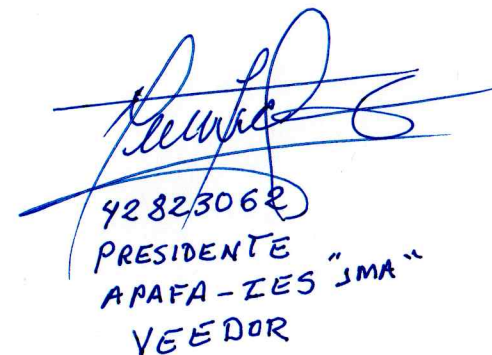 42823062
PRESIDENTE
APAFA-IES "JMA"
VEEDOR